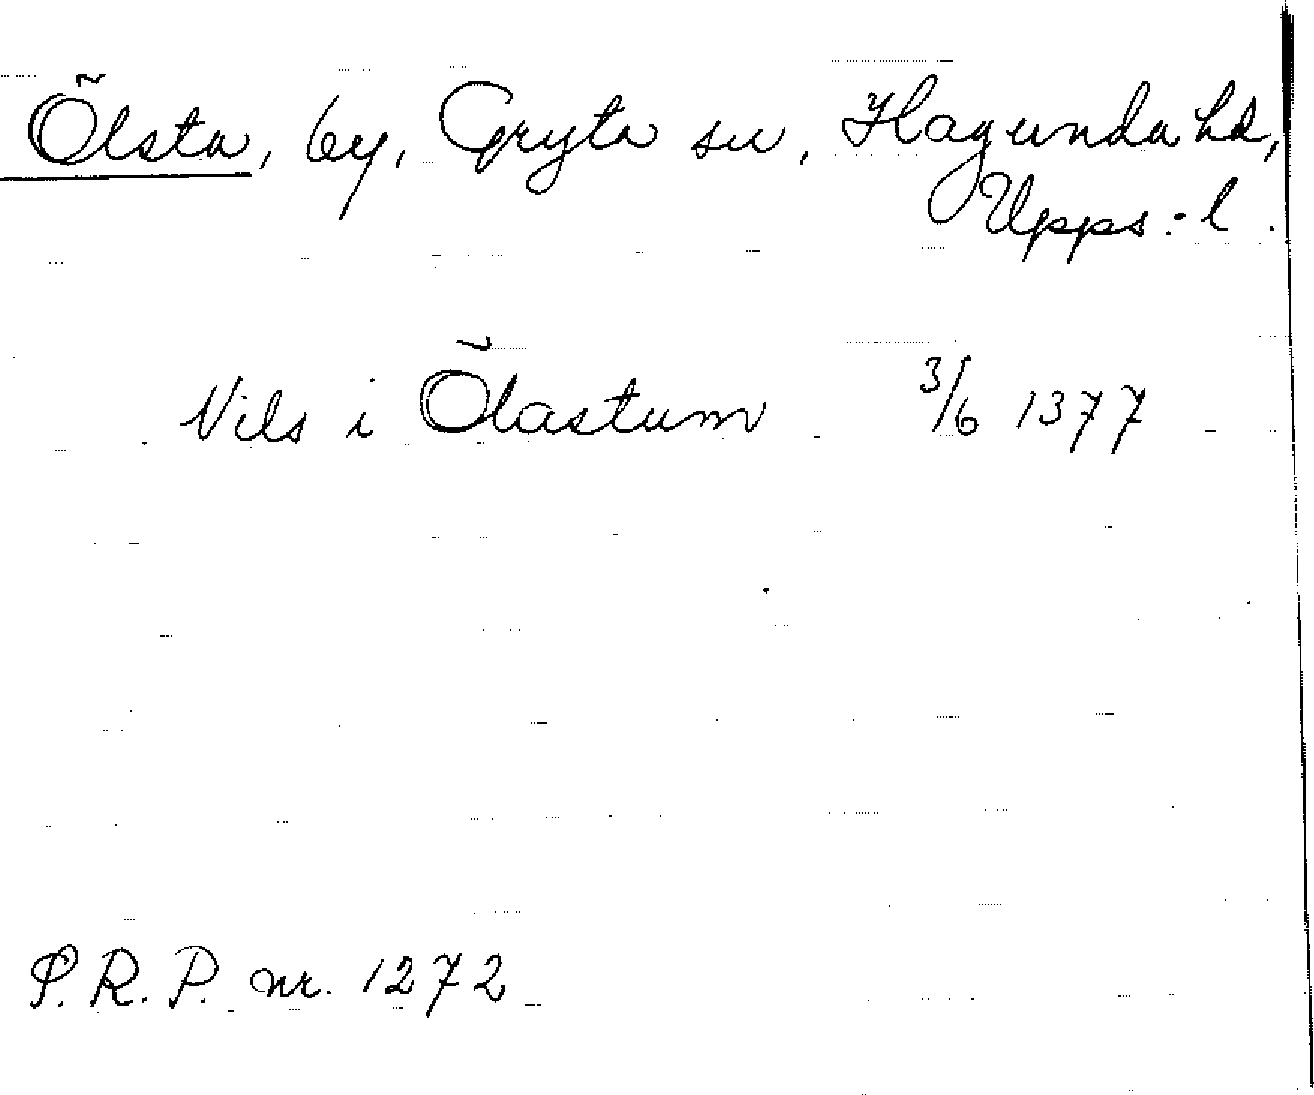 Ölsta, by, Gryta sn, Hagunda hd,
Upps:l.
Nils i Ölastum 3/6 1377
S.R.P. nr. 1272